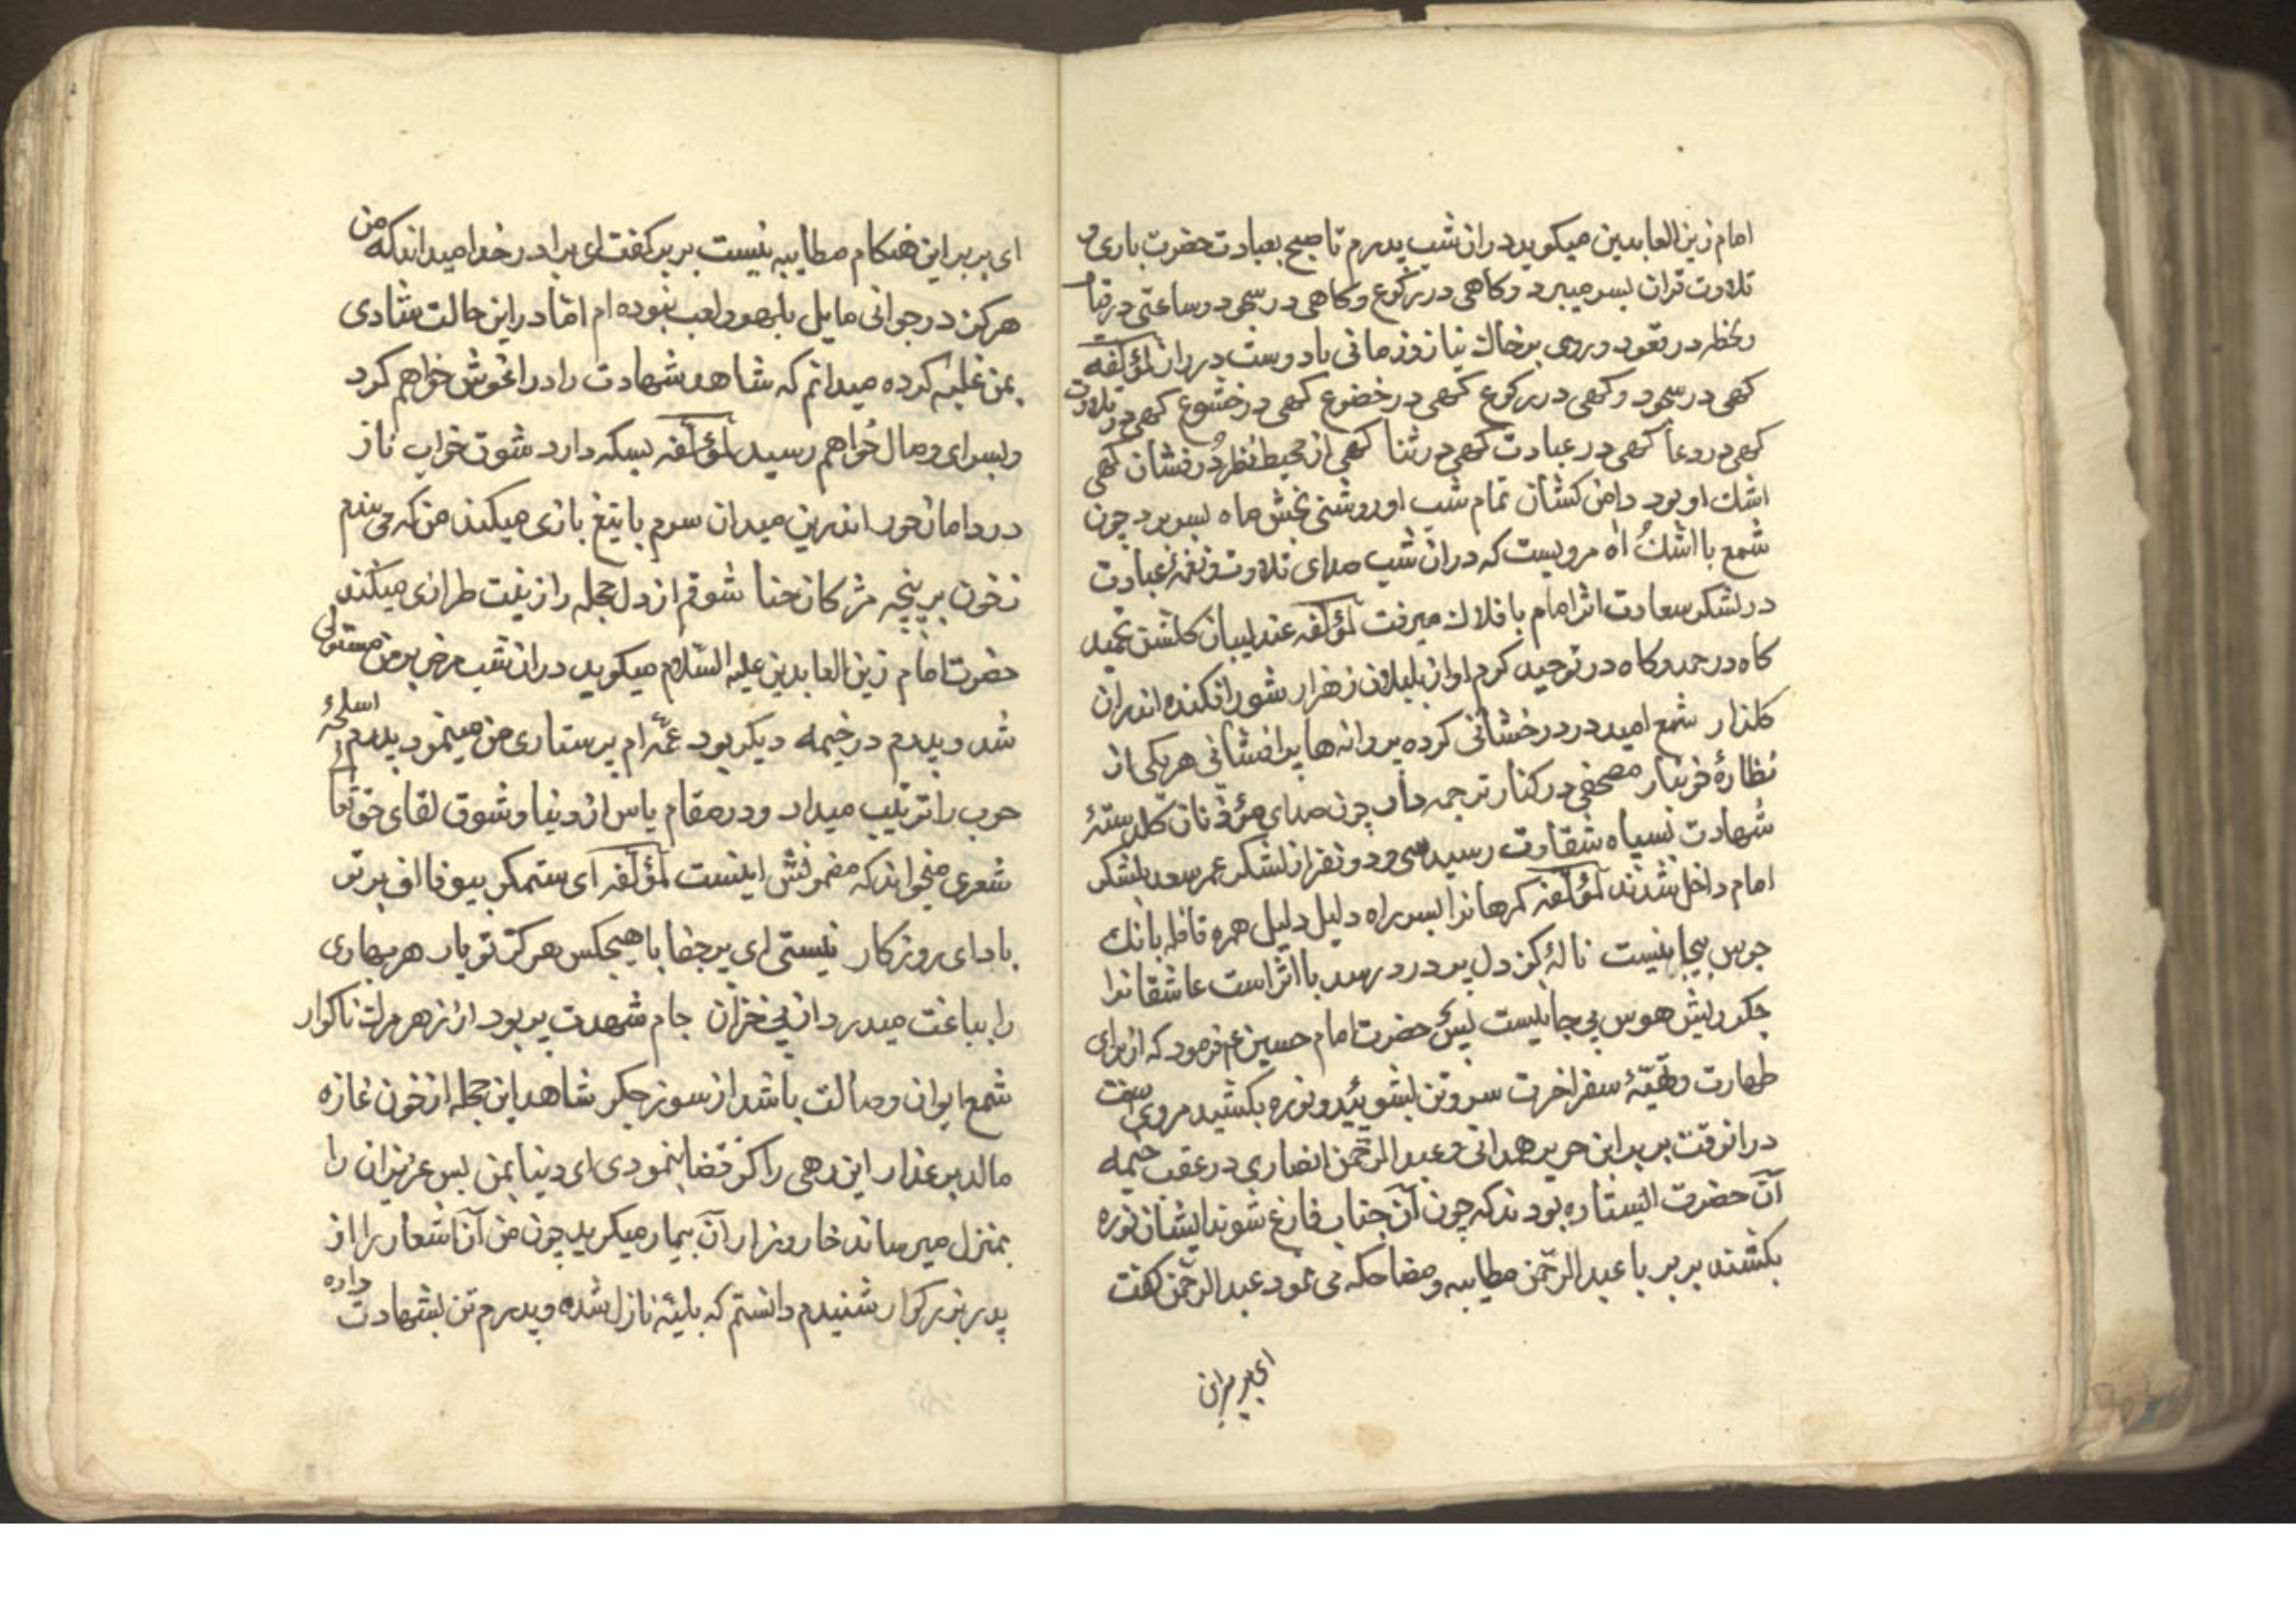 امام زین العابدین میکوید دران شب پدرم تا صبح بعبادت حضرت باری و
تلاوت قران بسر میبرد و کاهی در رکوع و کاهی در سجود و ساعتی در قیام
در قعود و روی بر خاك نیاز و زمانی با دوست در راز لمؤلفه
کهی در سجود و کهی در رکوع کهی در خضوع کهی در خشوع کهی در تلاوت
کهی در دعا کهی در عبادت کهی در ثنا کهی از محیط نظر دُرفشان کهی
اشك او بود دامن کشان تمام شب او روشنی بخش ماه بسر برد چون
شمع با اشك و اه مرویست که دران شب صدای تلاوت و نغمهٔ عبادت
در لشکر سعادت اثر امام بافلاك میرفت لمؤلفه عندلیبان کلشن تمجید
کاه در حمد و کاه در توحید کرم اواز بلبلان ز هزار شور افکنده اندران
کلذار شمع امید در درخشانی کرده پروانه ها پرافشانی هر یکی از
نظارهٔ مصحفی در کنار ترجمه دار چون صدای مؤذنان کلدستهٔ
شهادت بسپاه شقاوت رسید سی و دو نفر از لشکر عمر سعد بلشکر
امام داخل شدند لمؤلفه کمرهانرا بسر راه دلیل دلیل همره قافله بانك
جرس بیجا نیست نالهٔ کز دل پر درد رسد با اثر است عاشقانرا
جکر ریش هوس بی جا نیست پس حضرت امام حسین ع فرمود که از برای
طهارت و تهیّهٔ سفر اخرت سر و تن بشوئید و نوره بکشید مرویست
درانوقت بریر ابن حریر همدانی و عبد الرحمن انصاری در عقب خیمه
آن حضرت ایستاده بودند که چون آن جناب فارغ شوند ایشان نوره
بکشند بریر با عبد الرحمن مطایبه و مضاحکه می نمود عبد الرحمن کفت
ای بریر این
ای بریر این هنکام مطایبه نیست بریر کفت ای برادر خدا میداند که من
هرکز در جوانی مایل بلهو و لعب نبوده ام اما در این حالت شادی
بمن غلبه کرده میدانم که شاهد شهادت را در اغوش خواهم کرد
و بسرای وصال خواهم رسید لمؤلفه بسکه دارد شوق خواب ناز
در دامان حور اندرین میدان سرم با تیغ بازی میکند من که می بندم
ز خون بر پنجه مژکان حنا شوقم از دل حجله را زینت طرازی میکند
حضرت امام زین العابدین علیه السلام میکوید دران شب مرض بر من مستولی
شد و پدرم در خیمه دیکر بود عمّه ام پرستاری من مینمود پدرم اسلحهٔ
حرب را ترتیب میداد و در مقام یاس از دنیا و شوق لقای حق تعا
شعری میخواند که مضمونش اینست لمؤلفه ای ستمکر بیوفا اف بر تو
بادای روزکار نیستی ای پر جفا با هیچکس هرکز تو یار هر بهاری
را بباغت میدرد از پی خزان جام شهدت پر بود از زهر مرك ناکوار
شمع ایوان وصالت باشد از سوز جکر شاهد این حجله از خون غازه
مالد بر عذار این رهی را کز قضا بنمودی ای دنیا بمن بس عزیزان را
بمنزل میرساند خار و زار آن بیمار میکرید چون من آن اشعار را از
پدر بزرکوار شنیدم دانستم که بلیّه نازل شده و پدرم تن بشهادت داده